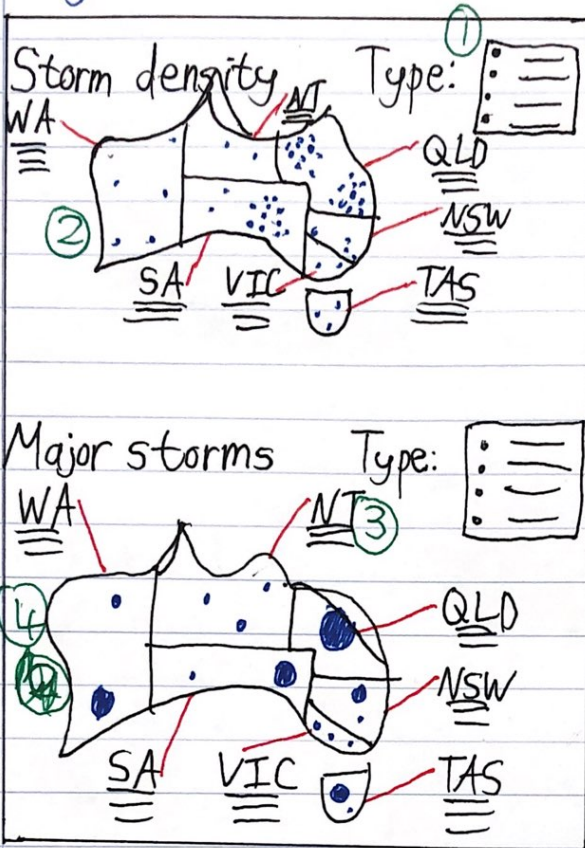 ①
Storm density Type:
WA NT
QLD
② NSW
SA VIC TAS
Major storms Type:
WA NT ③
④ QLD
NSW
SA VIC TAS